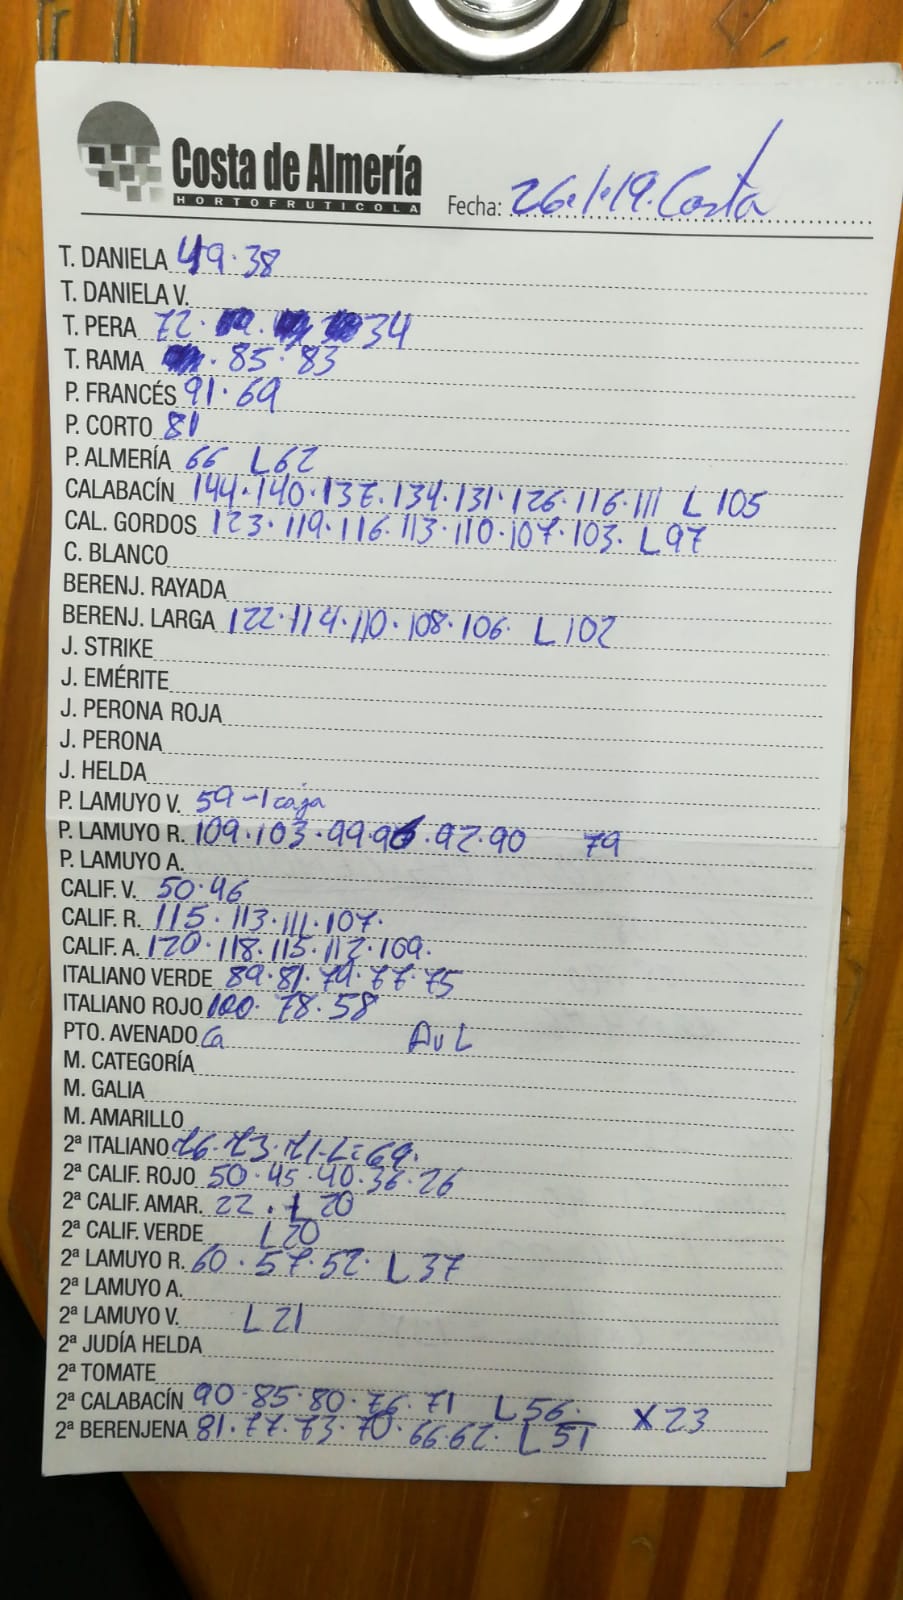 Costa de Almería
HORTOFRUTICOLA
Fecha: 26·1·19. Costa
T. DANIELA 49·38
T. DANIELA V.
T. PERA 72· 34
T. RAMA ·85·83
P. FRANCÉS 91·69
P. CORTO 81
P. ALMERÍA 66 L62
CALABACÍN 144·140·137·134·131·126·116·111 L 105
CAL. GORDOS 123·119·116·113·110·107·103· L97
C. BLANCO
BERENJ. RAYADA
BERENJ. LARGA 122·114·110·108·106· L102
J. STRIKE
J. EMÉRITE
J. PERONA ROJA
J. PERONA
J. HELDA
P. LAMUYO V. 59-1 caja
P. LAMUYO R. 109·103·99·96·92·90 79
P. LAMUYO A.
CALIF. V. 50·46
CALIF. R. 115·113·111·107·
CALIF. A. 120·118·115·112·109·
ITALIANO VERDE 89·81·79·77·75
ITALIANO ROJO 100·78·58
PTO. AVENADO Ca Av L
M. CATEGORÍA
M. GALIA
M. AMARILLO
2ª ITALIANO 76·73·71·L:69·
2ª CALIF. ROJO 50·45·40·36·26
2ª CALIF. AMAR. 22· L 20
2ª CALIF. VERDE L20
2ª LAMUYO R. 60·57·52· L37
2ª LAMUYO A.
2ª LAMUYO V. L21
2ª JUDÍA HELDA
2ª TOMATE
2ª CALABACÍN 90·85·80·76·71 L56· X23
2ª BERENJENA 81·77·73·70·66·62· L51